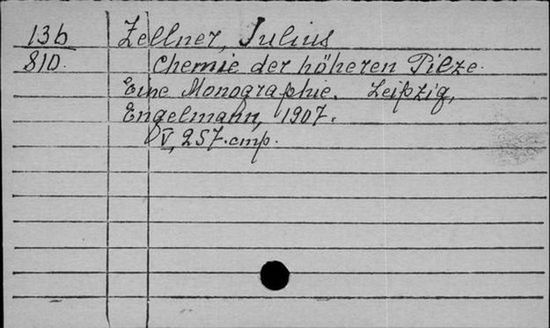 13b Zellner, Julius
810. Chemie der höheren Pilze.
Eine Monographie. Leipzig,
Engelmann, 1907.
V, 257. стр.